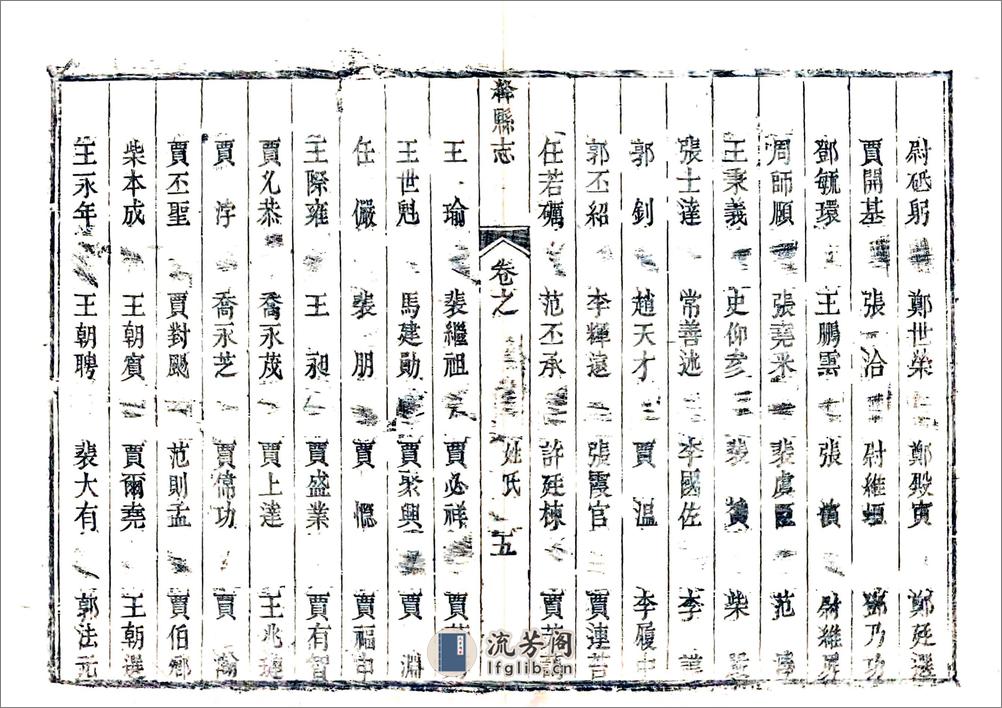 尉砥躬 鄭世榮 鄭殿寅 鄭廷選
賈開基 張洽 尉維垣 鄧乃功
鄧毓環 王鵬雲 張 尉維
周師頤 張堯采 裴虞臣 范
王秉義 史仰參 裴 柴
張士達 常善述 李國佐 李
郭釗 趙天才 賈溫 李履中
郭丕紹 李輝遠 張霞官 賈連
任若礪 范丕承 許廷棟 賈
絳縣志 卷之 姓氏 五
王瑜 裴繼祖 賈必祥 賈
王世魁 馬建勛 賈聚興 賈淵
任儼 裴朋 賈 賈福申
王際雍 王昶 賈盛業 賈有智
賈允恭 喬永茂 賈上達 王兆
賈浮 喬永芝 賈常功 賈
賈丕聖 賈對颺 范則孟 賈伯鄉
柴本成 王朝賓 賈爾堯 王朝選
王永年 王朝聘 裴大有 郭法元
流芳阁
lfglib.cn